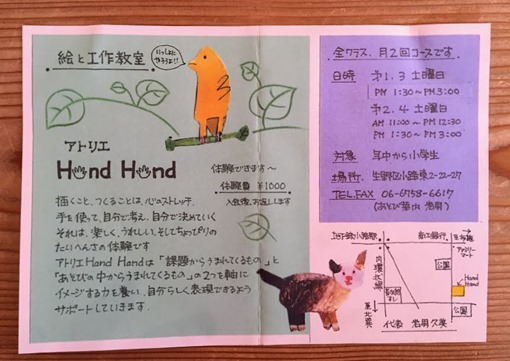 絵と工作教室
いっしょに
やろうよ!!
アトリエ
Hand Hand
体験できます〜
体験費 ¥1000
入会後、お返しします
描くこと、つくることは、心のストレッチ。
手を使って、自分で考え、自分で決めていく
それは、楽しく、うれしい、そしてちょっぴりの
たいへんさの体験です
アトリエHand Handは「課題からうまれてくるもの」と
「あそびの中からうまれてくるもの」の2つを軸に
イメージする力を養い、自分らしく表現できるよう
サポートしていきます。
全クラス、月2回コースです
日時 第1.3 土曜日
PM 1:30~PM 3:00
第2.4 土曜日
AM 11:00~PM 12:30
PM 1:30~PM 3:00
対象 年中から小学生
場所 生野区小路東2-22-27
TEL.FAX 06-6758-6617
内環状線
公園
Hand
Hand
公園
代表 岩朋久美